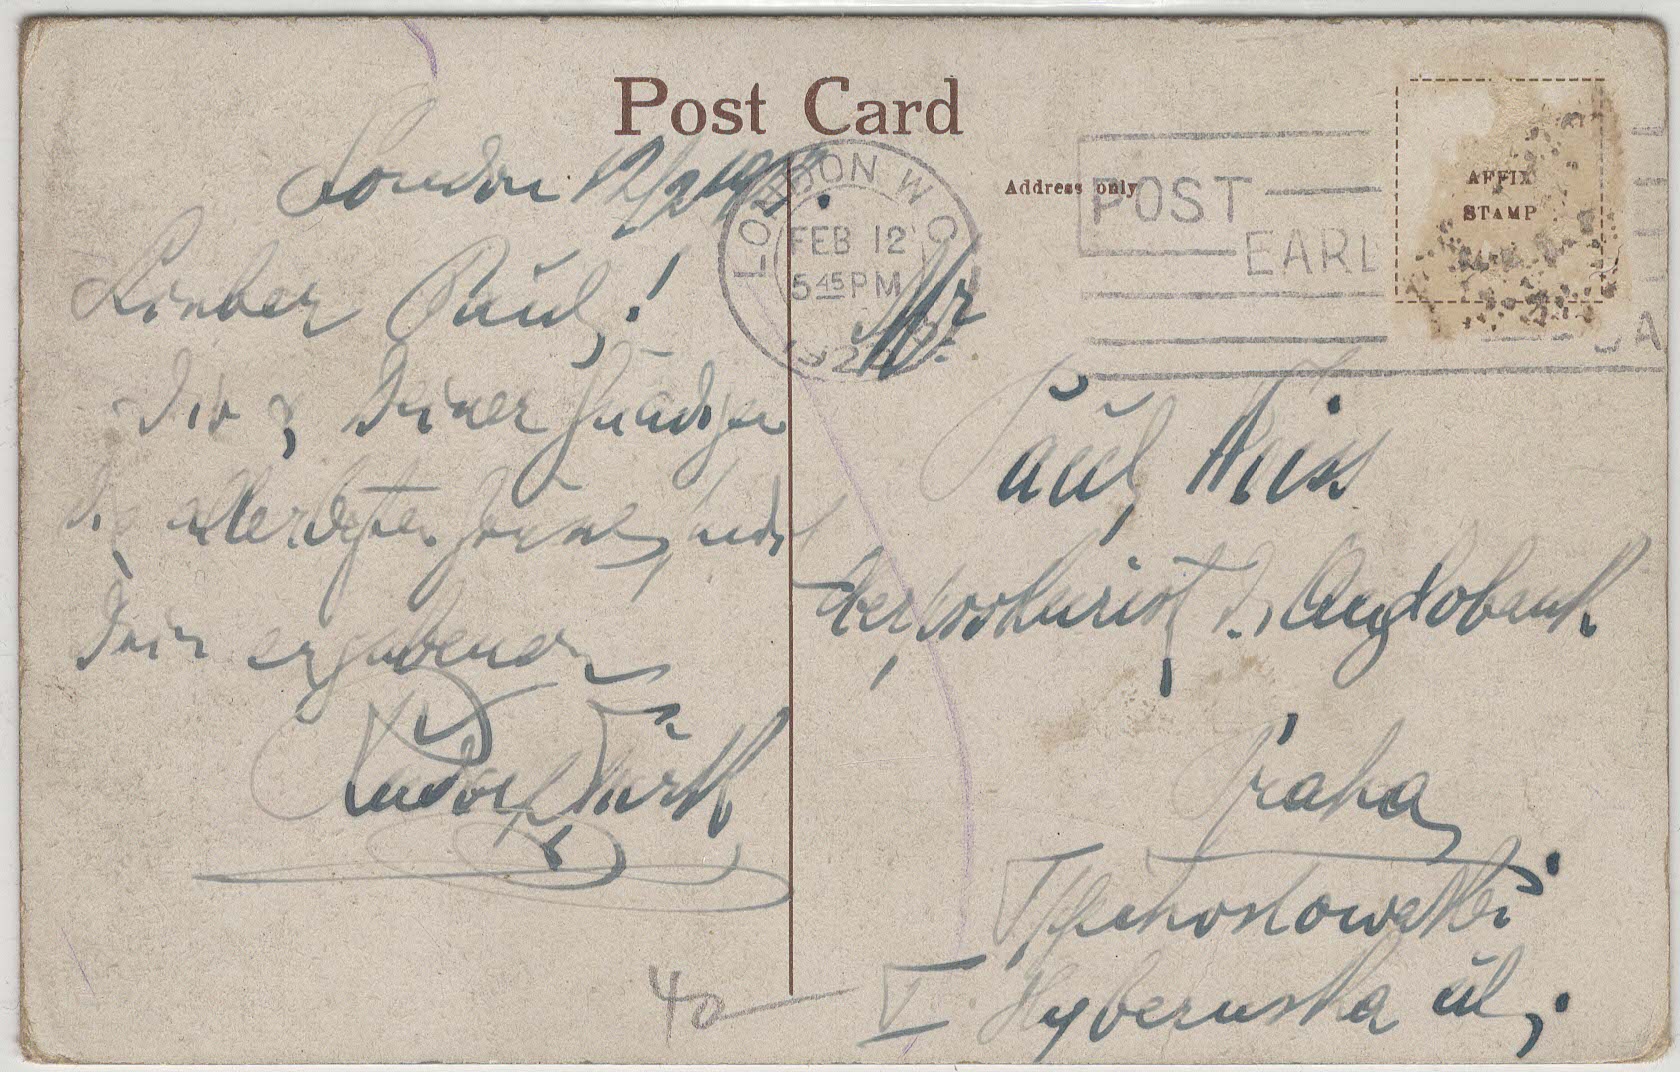 Post Card
Address only
AFFIX
STAMP
LONDON W.C.
FEB 12
5 45 PM
192
POST
EARL
London 12/2
Lieber Paul!
Dir & Deiner
Die allerbesten
Dein ergebener
Rudolf
Mr
Paul Weiss
d. Anglobank
Praha
Tschechoslowakei
Hybernska ul.
40